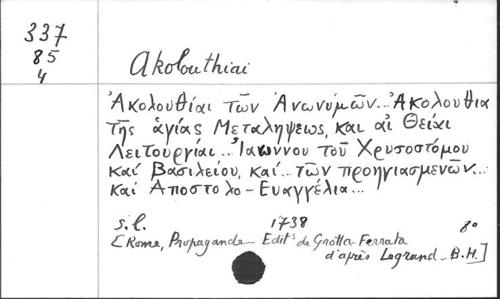 337
85
4
Akolouthiai
Ἀκολουθίαι τῶν Ἀνωνύμῶν... Ἀκολουθια
τῆς ἁγίας Μεταλήψεως, και αἱ Θεῖαι
Λειτουργίαι... Ἰωάννου τοῦ Χρυσοστόμου
καί Βασιλείου, καί... τῶν προηγιασμενῶν...
καί Αποστολο-Ευαγγέλια...
s.l. 1738 8º
[Rome, Propagande - Edit⁵ de Grotta-Ferrata
d'après Legrand - B.H.]